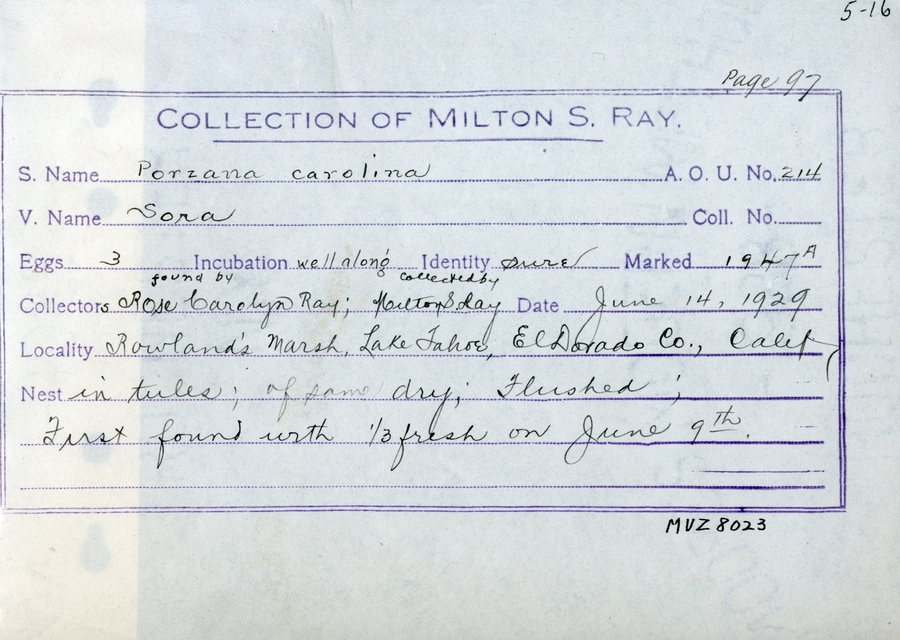 5-16
Page 97
COLLECTION OF MILTON S. RAY.
S. Name Porzana carolina A. O. U. No. 214
V. Name Sora Coll. No.
Eggs 3 Incubation well along Identity sure Marked 1947A
found by collected by
Collectors Rose Carolyn Ray; Milton S Ray Date June 14, 1929
Locality Rowland's Marsh, Lake Tahoe, El Dorado Co., Calif
Nest in tules; of same dry; Flushed;
First found with 1/3 fresh on June 9th.
MVZ 8023